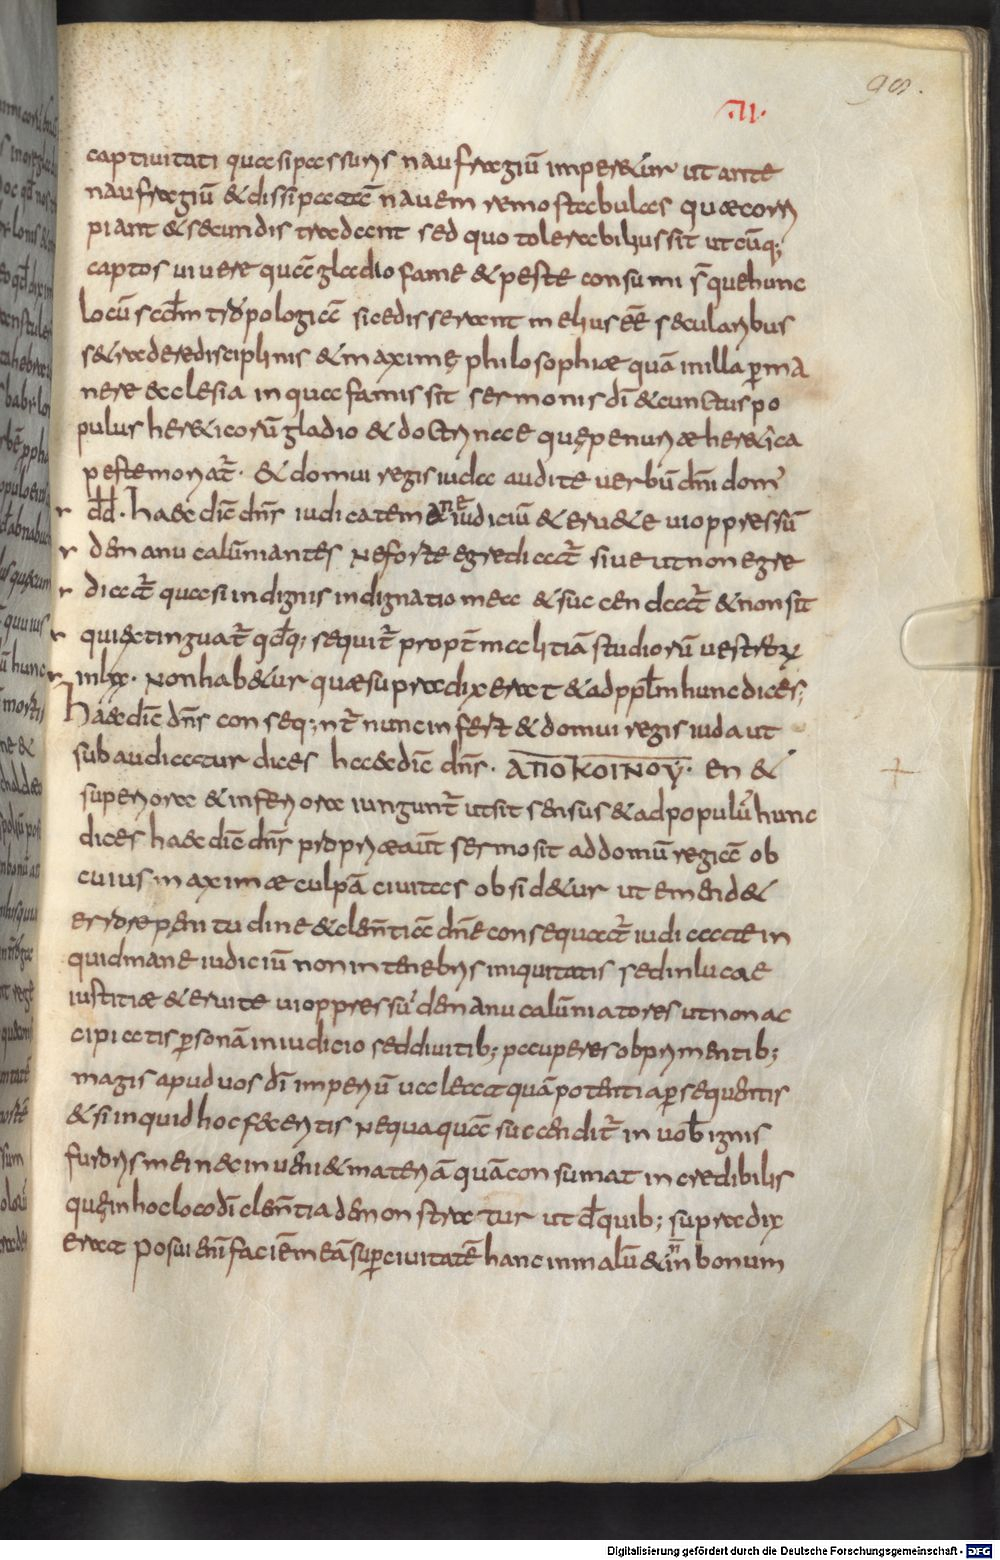 98.
·VI·
captiuitati quasi passuris naufragiū imper&ur ut ante
naufragiū & dissipatā nauem remos tabulas quæ corri
piant & se undis tradant sed quo tolerabilius sit utcūq;
captos uiuere quā gladio fame & peste consumi s̄ quehunc
locū scd̄m tropologiā sicedisserant melius eē sæcularibus
se tradere disciplinis & maximę philosophiæ quā inilla ꝑma
nere æclesia in qua famis sit sermonis dī & cunctus po
pulus her&icorū gladio & doctrinæ quę penuriæ her&ica
peste moriat̄· & domui regis iuda audite uerbū dn̄i dom'
dd̄· haec dic̄ dn̄s iudicate mane iudiciū & eru&e uioppressū
dēmanu calūmiantes Neforte egrediat̄ siue ut non egre
diat̄ quasi indignis indignatio mea & succendat̄ & non sit
qui extinguat̄ qd̄q; sequit̄ propt̄ malitiā studiorū uestrorꝝ
inlxx· Non hab&ur quæ supra dixerat & ad pp̄lm hunc dices;
haec dic̄ dn̄s conseq;nt̄ nunc infert & domui regis iuda ut
subaudiatur dices haec dic̄ dn̄s· ΑΠΟΚΟΙΝΟΥ· en &
superiora & inferiora iungunt̄ ut sit sensus & ad populū hunc
dices haec dic̄ dn̄s propriæ aūt sermo sit ad domū regiā ob
cuius maximæ culpā ciuitas obsid&ur ut emend&
errore penitudine & clem̄tiā dn̄e consequat̄ iudicate in
quid mane iudiciū non in tenebris iniquitatis sed in lucae
iustitiæ & eruite uioppressū de manu calūniatores ut non ac
cipiatis ꝑsonā in iudicio sed diuitib; pauperes obprimentib;
magis apud uos dī imperiū ualeat quā potentia ꝑsequentis
& si inquid hoc feceritis Nequaquā succendit̄ in uob̄ ignis
furoris mei nec inueni& materiā quā consumat incredibilis
quę in hoc loco dī clem̄tia demonstratur ut d̄ quib; supra dix
erat posui eni faciē meā suꝑ ciuitatē hanc in malū & n̄ in bonum
Digitalisierung gefördert durch die Deutsche Forschungsgemeinschaft - DFG